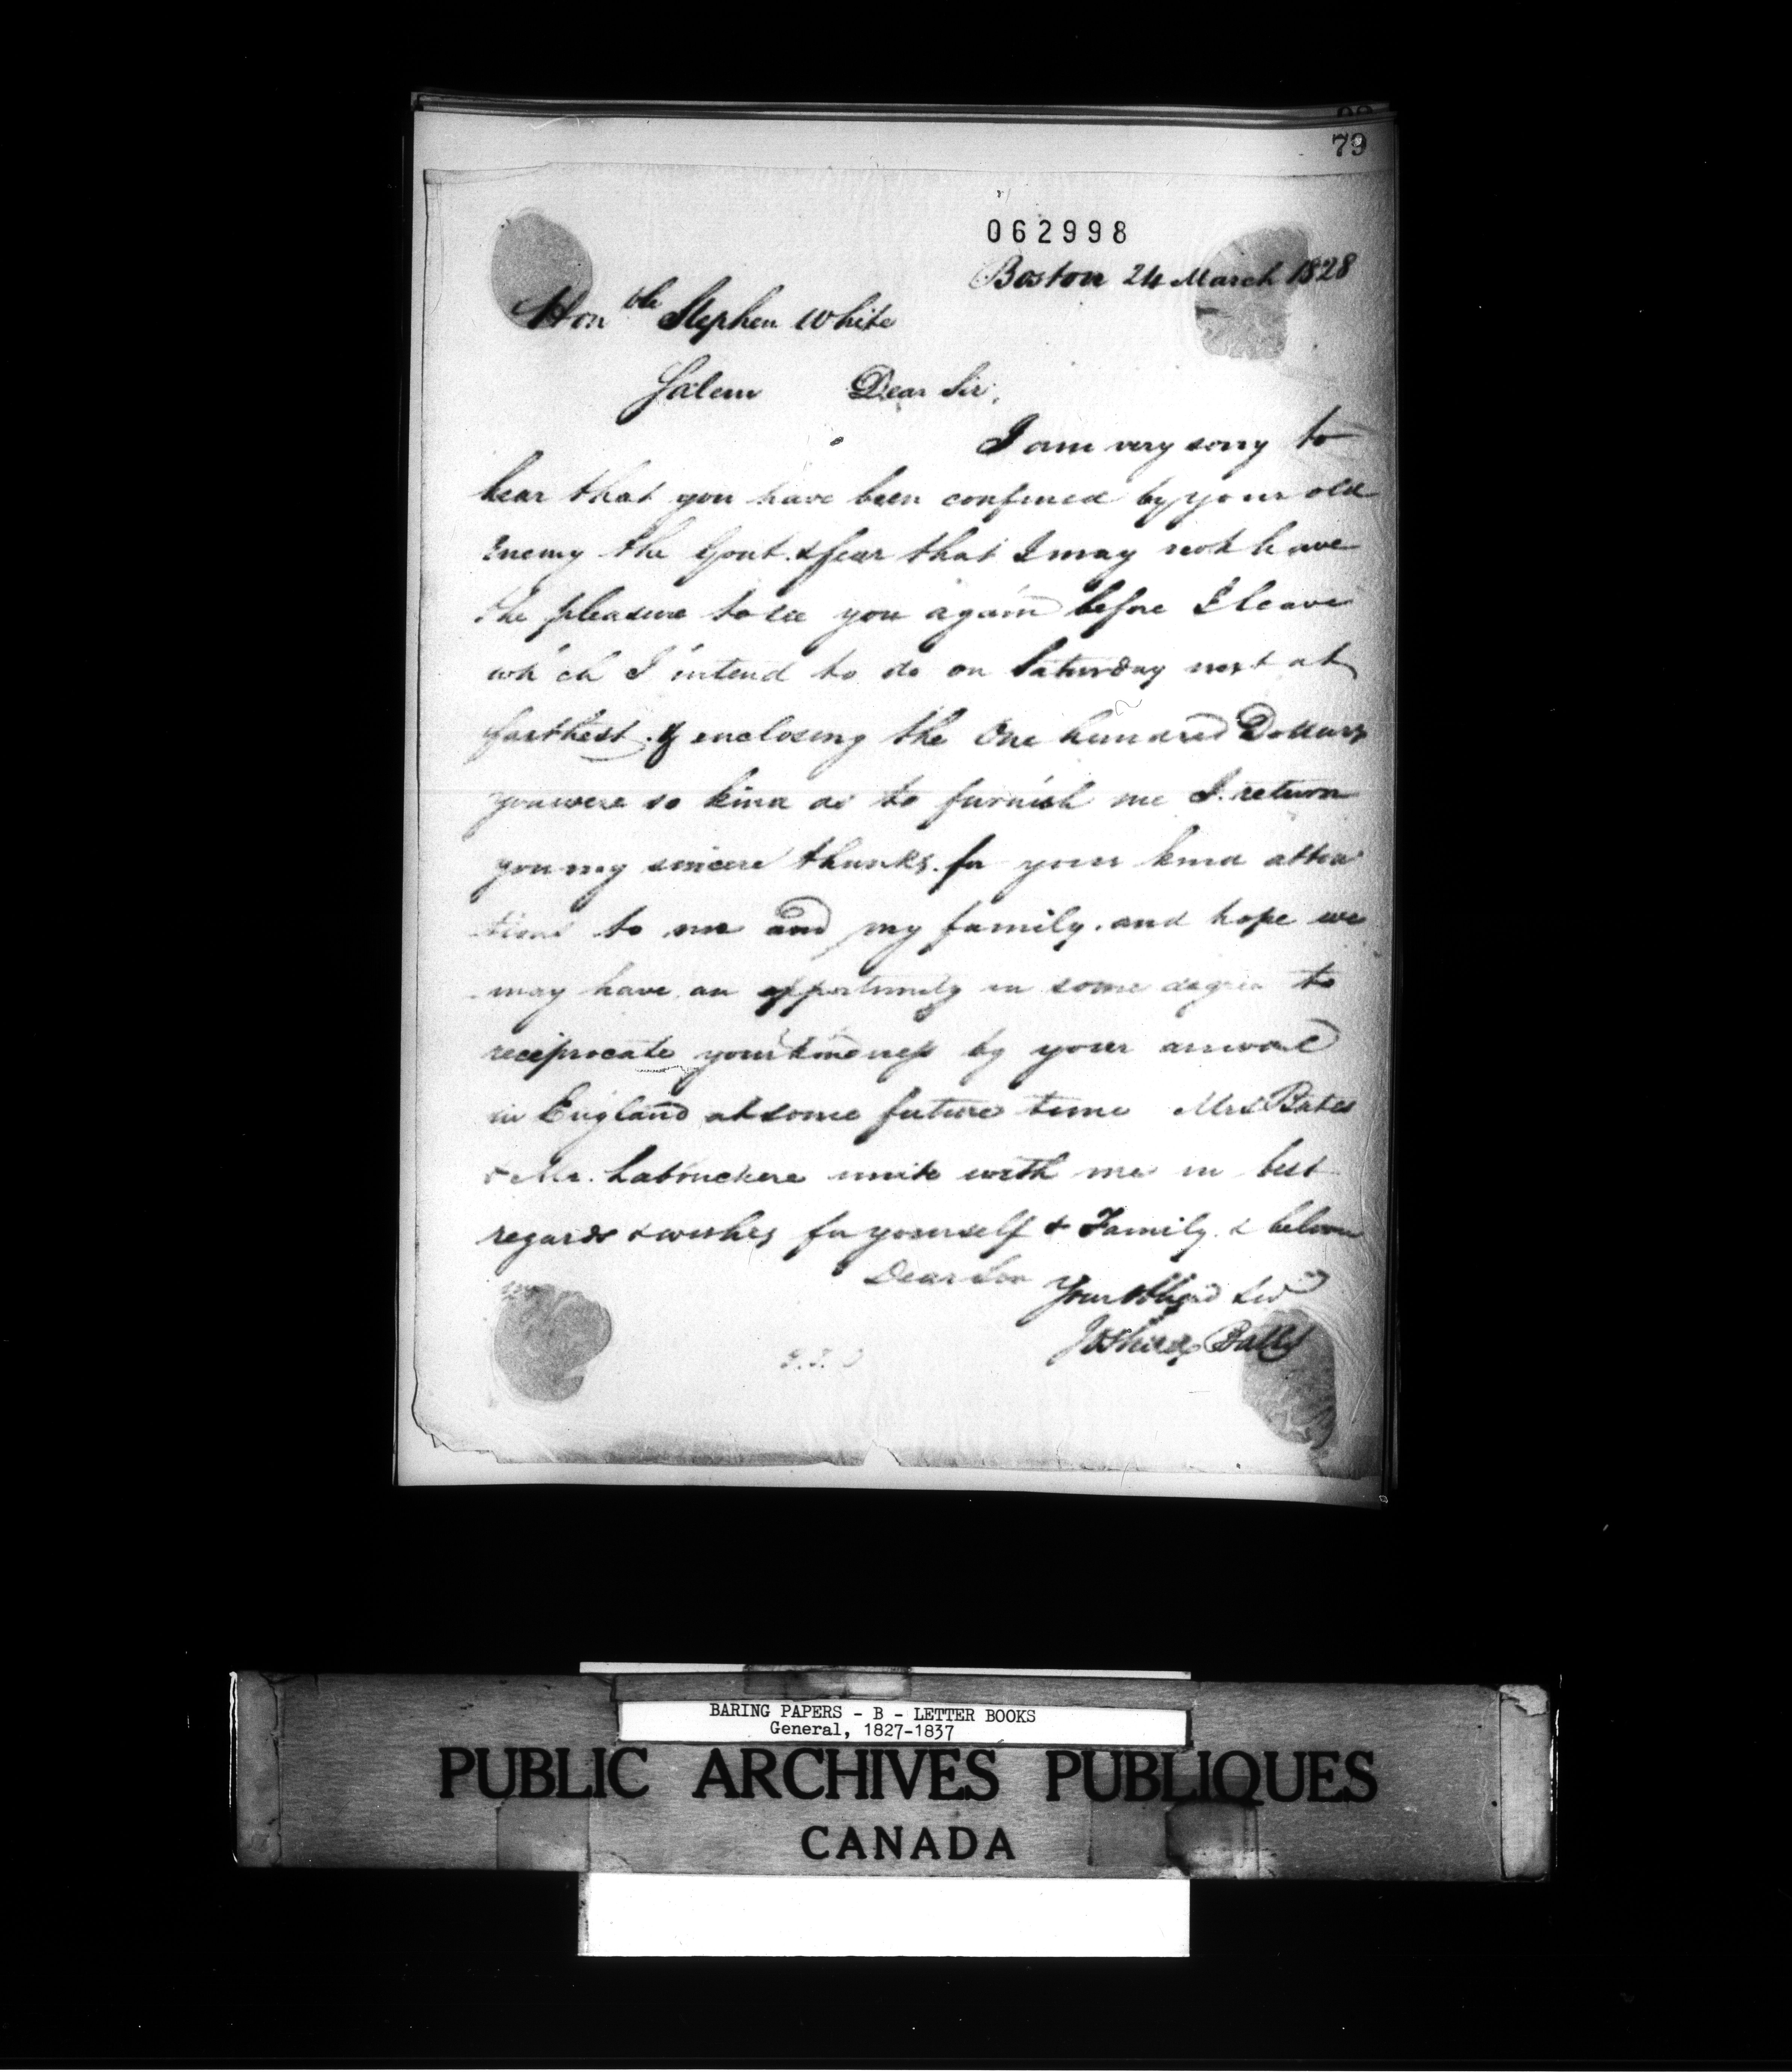 79
062998
Boston 24 March 1828
Honble Stephen White
Salem Dear Sir,
I am very sorry to
hear that you have been confined by your old
Enemy the Gout. & fear that I may not have
the pleasure to see you again before I leave
which I intend to do on Saturday next at
farthest. enclosing the One hundred Dollars
you were so kind as to furnish me I return
you my sincere thanks. for your kind atten
tions to me and my family. and hope we
may have an opportunity in some degree to
reciprocate your kindness by your arrival
in England at some future time Mrs Bates
& Mr. Labouchere unite with me in best
regards & wishes for yourself & Family. &
Dear Sir
Your Obliged
Joshua Bates
BARING PAPERS - B - LETTER BOOKS
General, 1827-1837
PUBLIC ARCHIVES PUBLIQUES
CANADA